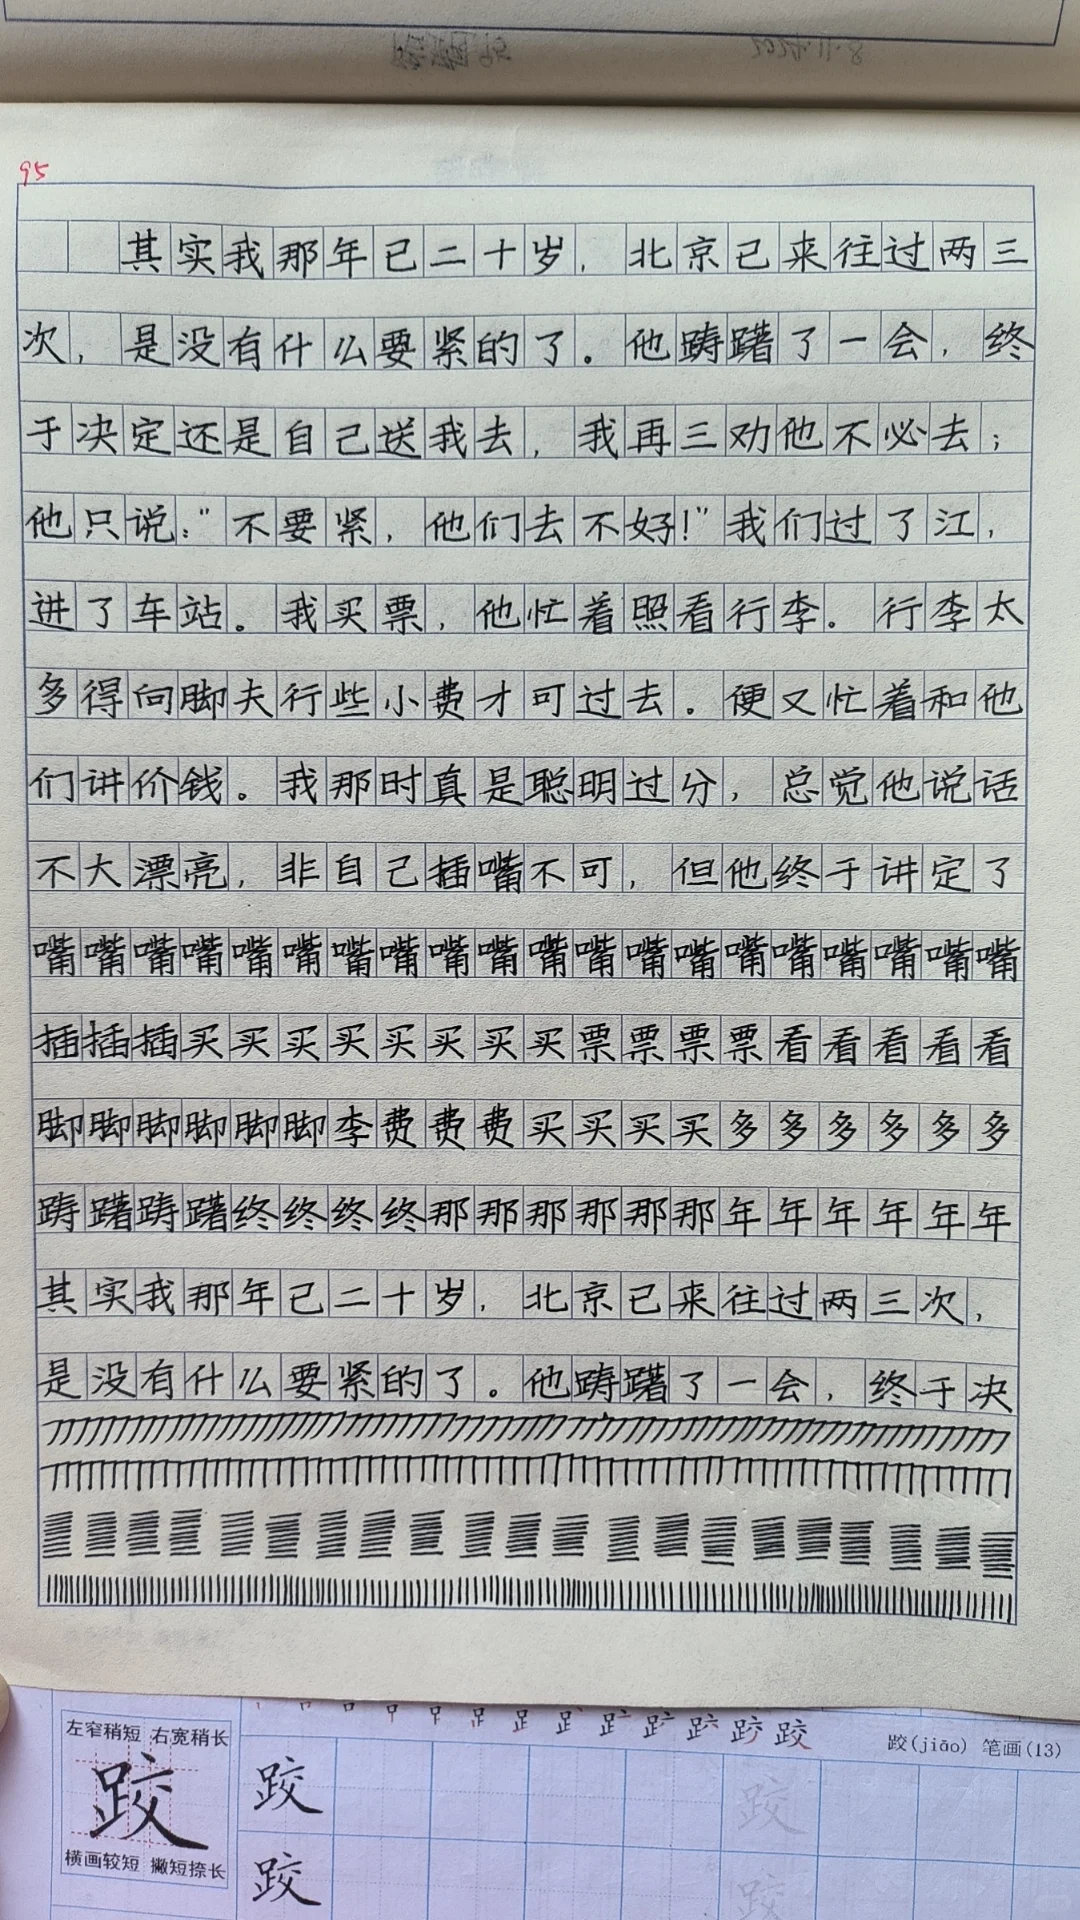 2024.11.8
95
其实我那年已二十岁，北京已来往过两三
次，是没有什么要紧的了。他踌躇了一会，终
于决定还是自己送我去，我再三劝他不必去；
他只说："不要紧，他们去不好！"我们过了江，
进了车站。我买票，他忙着照看行李。行李太
多得向脚夫行些小费才可过去。便又忙着和他
们讲价钱。我那时真是聪明过分，总觉他说话
不大漂亮，非自己插嘴不可，但他终于讲定了
嘴嘴嘴嘴嘴嘴嘴嘴嘴嘴嘴嘴嘴嘴嘴嘴嘴嘴嘴嘴
插插插买买买买买买买买票票票票看看看看看
脚脚脚脚脚脚李费费费买买买买多多多多多多
踌躇踌躇终终终终那那那那那那年年年年年年
其实我那年已二十岁，北京已来往过两三次，
是没有什么要紧的了。他踌躇了一会，终于决
左窄稍短 右宽稍长
跤
横画较短 撇短捺长
跤(jiāo) 笔画(13)
跤 跤
跤 跤